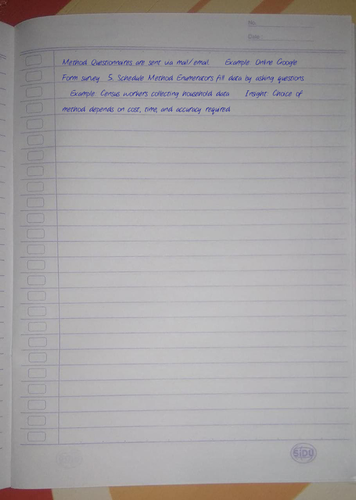 No.
Date
Method Questionnaires are sent via mail/email. Example Online Google
Form survey 5. Schedule Method Enumerators fill data by asking questions
Example Census workers collecting household data Insight Choice of
method depends on cost, time, and accuracy required
SIDU